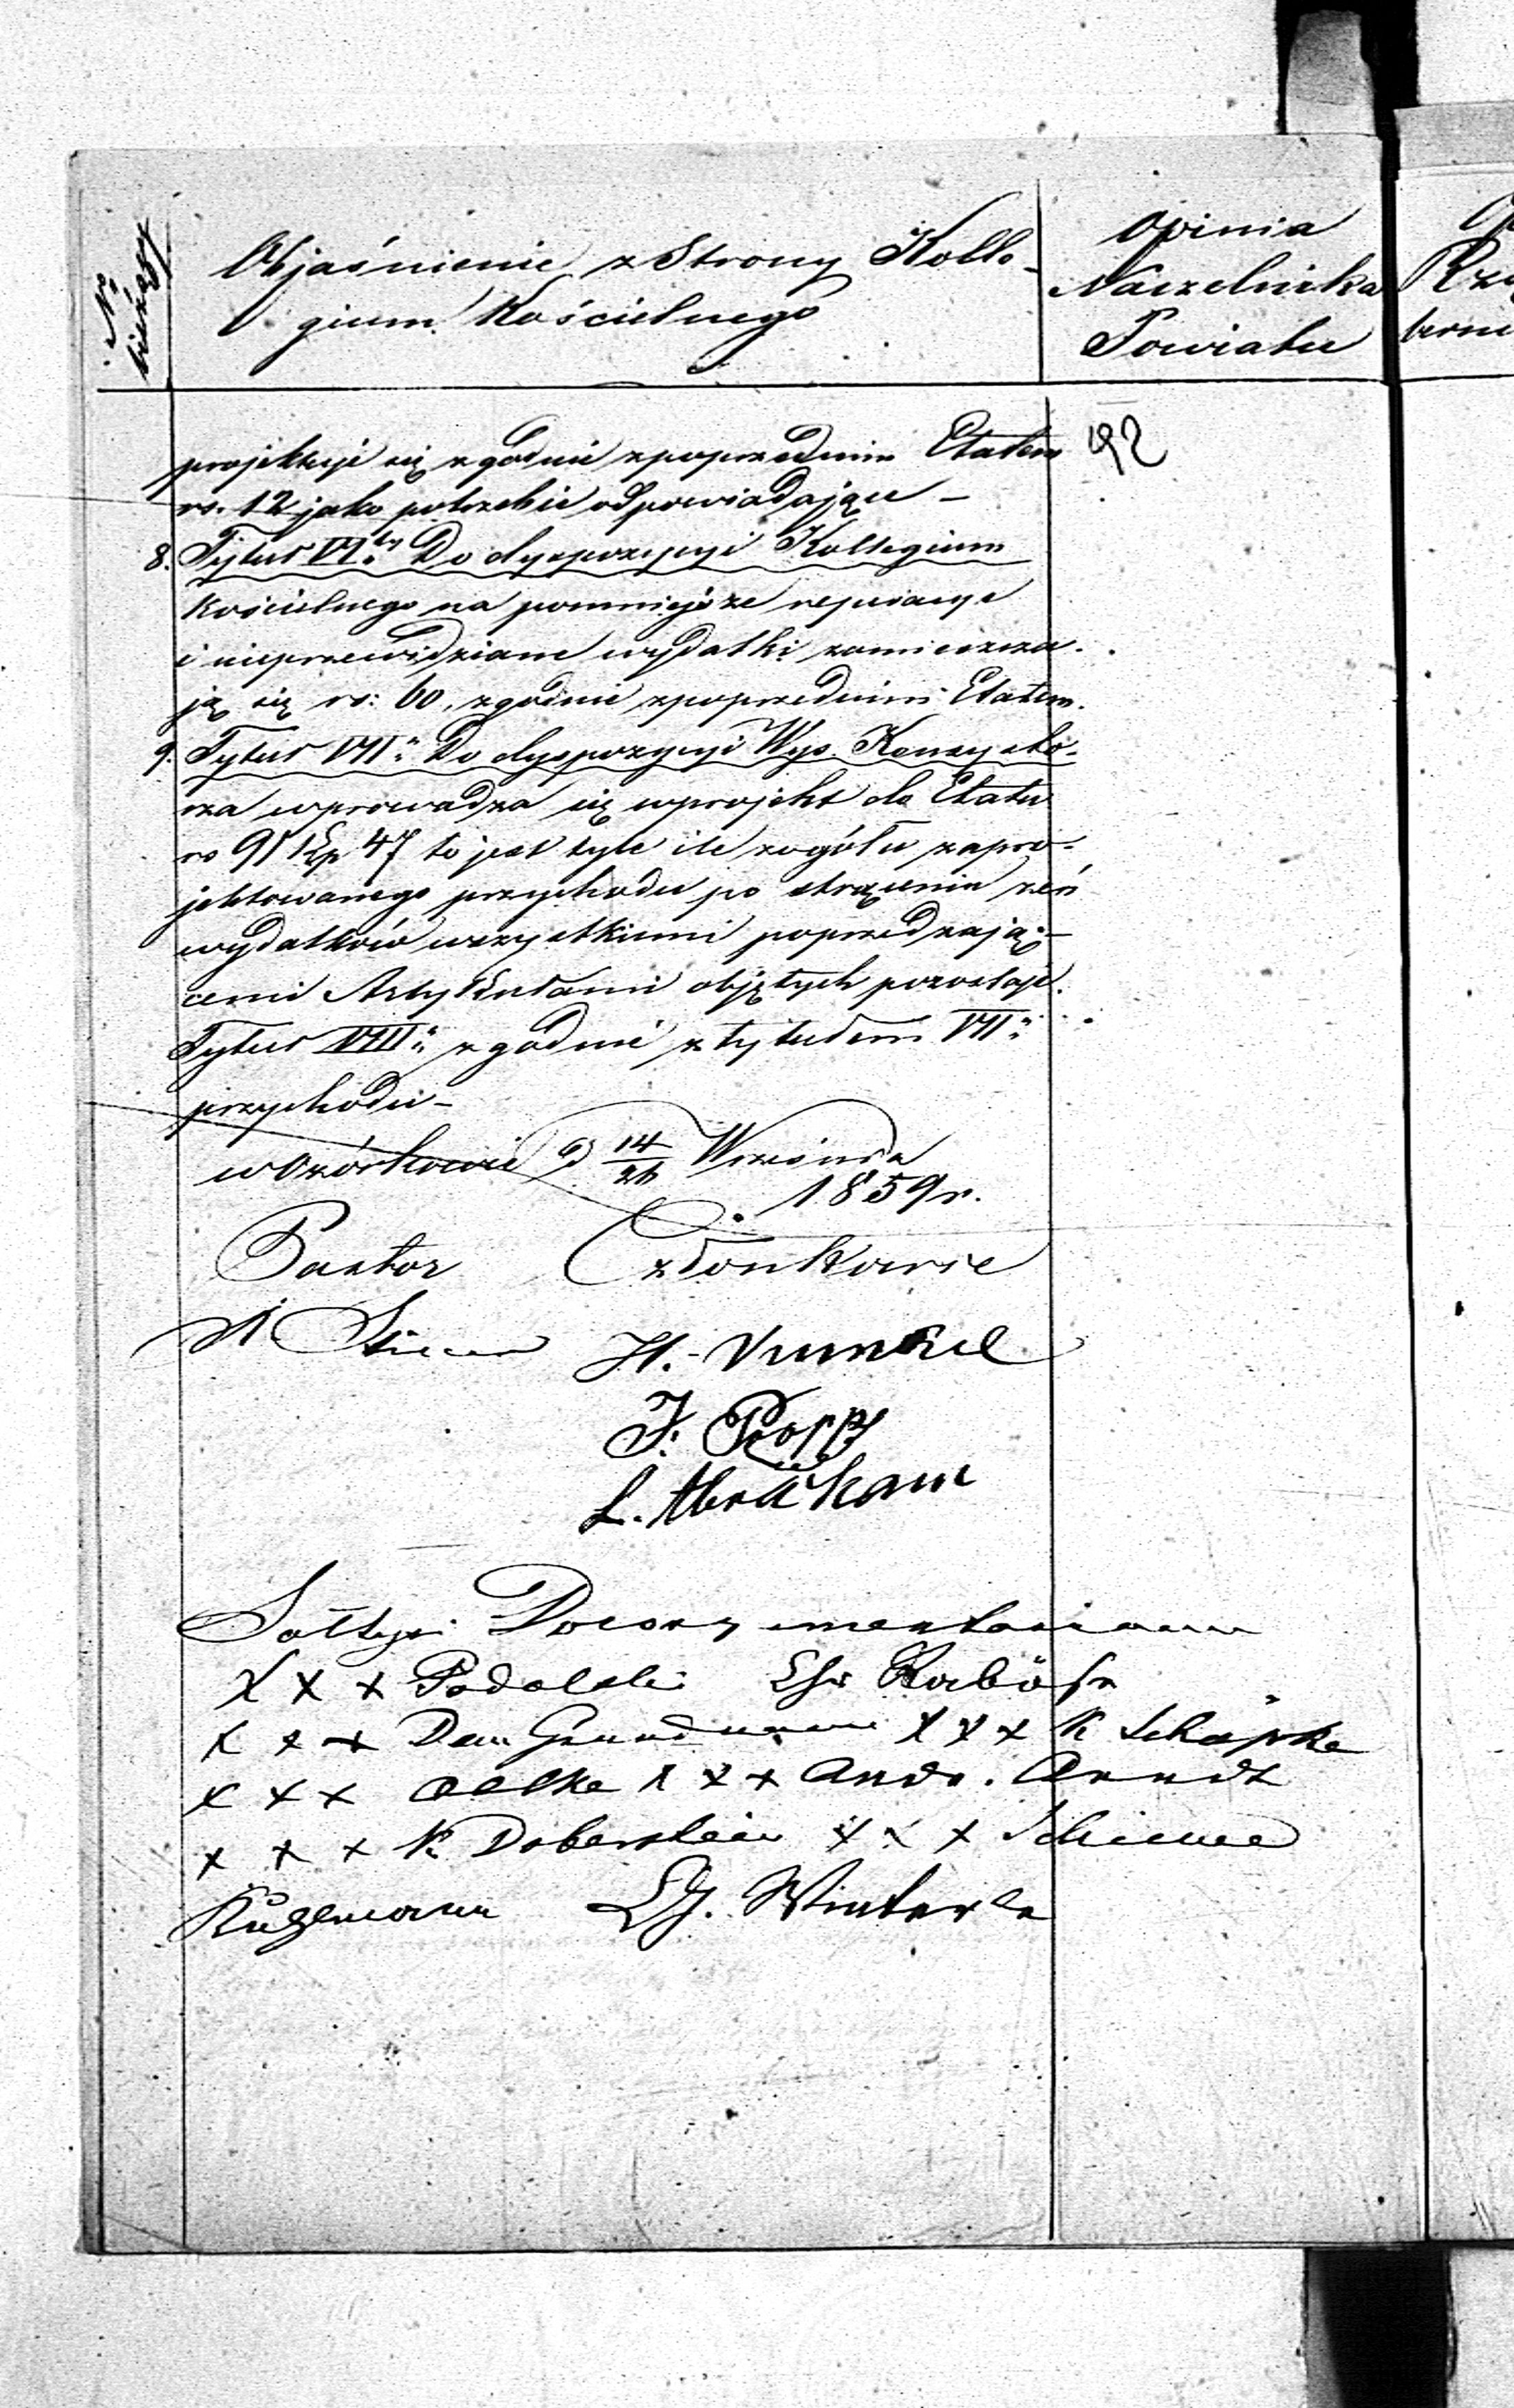 Nr bieżący
Objaśnienie z Strony Kolle-
gium Kościelnego
Opinia
Naczelnika
Powiatu
192
projektuje się zgodnie z poprzednim Etatem
rs. 12 jako potrzebie odpowiadające –
8. Tytuł VI.ty Do dyspozycyi Kollegium
Kościelnego na pomniejsze reperacye
i nieprzewidziane wydatki zamieszcza-
ją się rs: 60, zgodnie z poprzednim Etatem.
9. Tytuł VII: Do dyspozycyi Wys. Konsysto-
rza wprowadza się w projekt do Etatu
rs 91 kp 47 to jest tyle ile z ogółu zapro-
jektowanego przychodu po strąceniu zeń
wydatków wszystkiemi poprzedzają-
cemi Artykułami objętych pozostaje.
Tytuł VIII: zgodnie z tytułem VII:
przychodu –
w Ozórkowie d 14/26 Września
1859 r.
Pastor Członkowie
H. Kunkel
J. Popp
L. Abraham
Sołtysi
X X X Podolski
X X X Dan Grundmann X X X K Schäpke
X X X Oelke X X X Andr. Arndt
X X X K Doberstein X X X